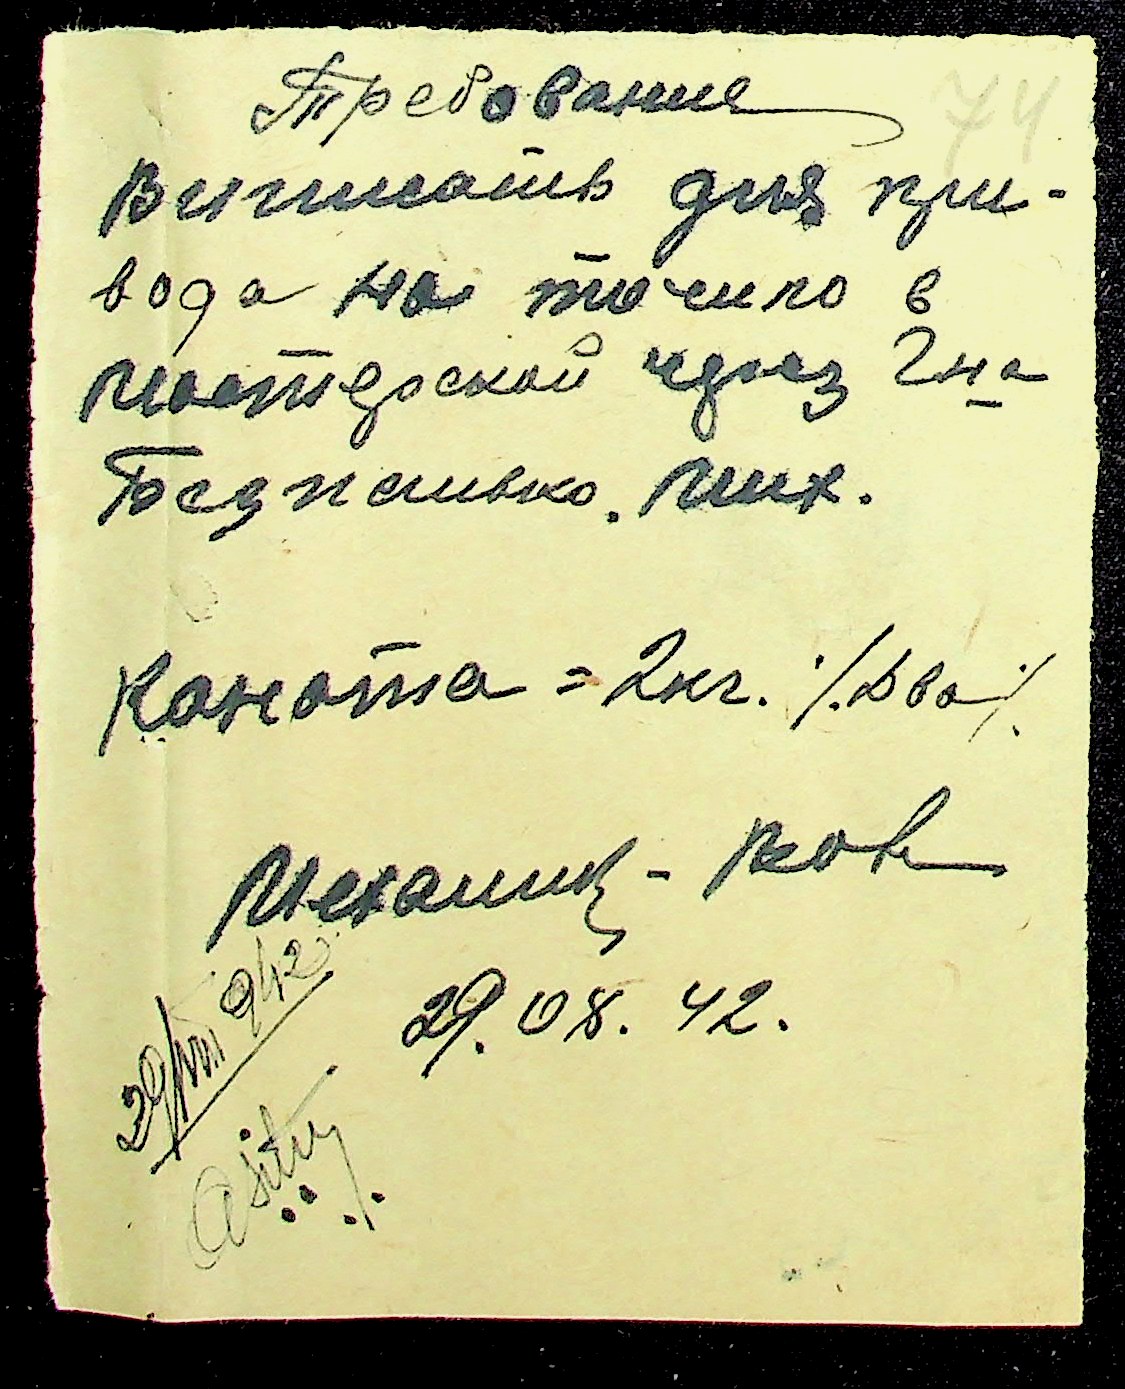 Требование
74
Виписать для при-
вода на точило в
мастерской через Гна
Безпалько. Мих.
Каната = 2кг. ./.Два ./.
Механик - Ков
29.08.42.
29/VIII 942